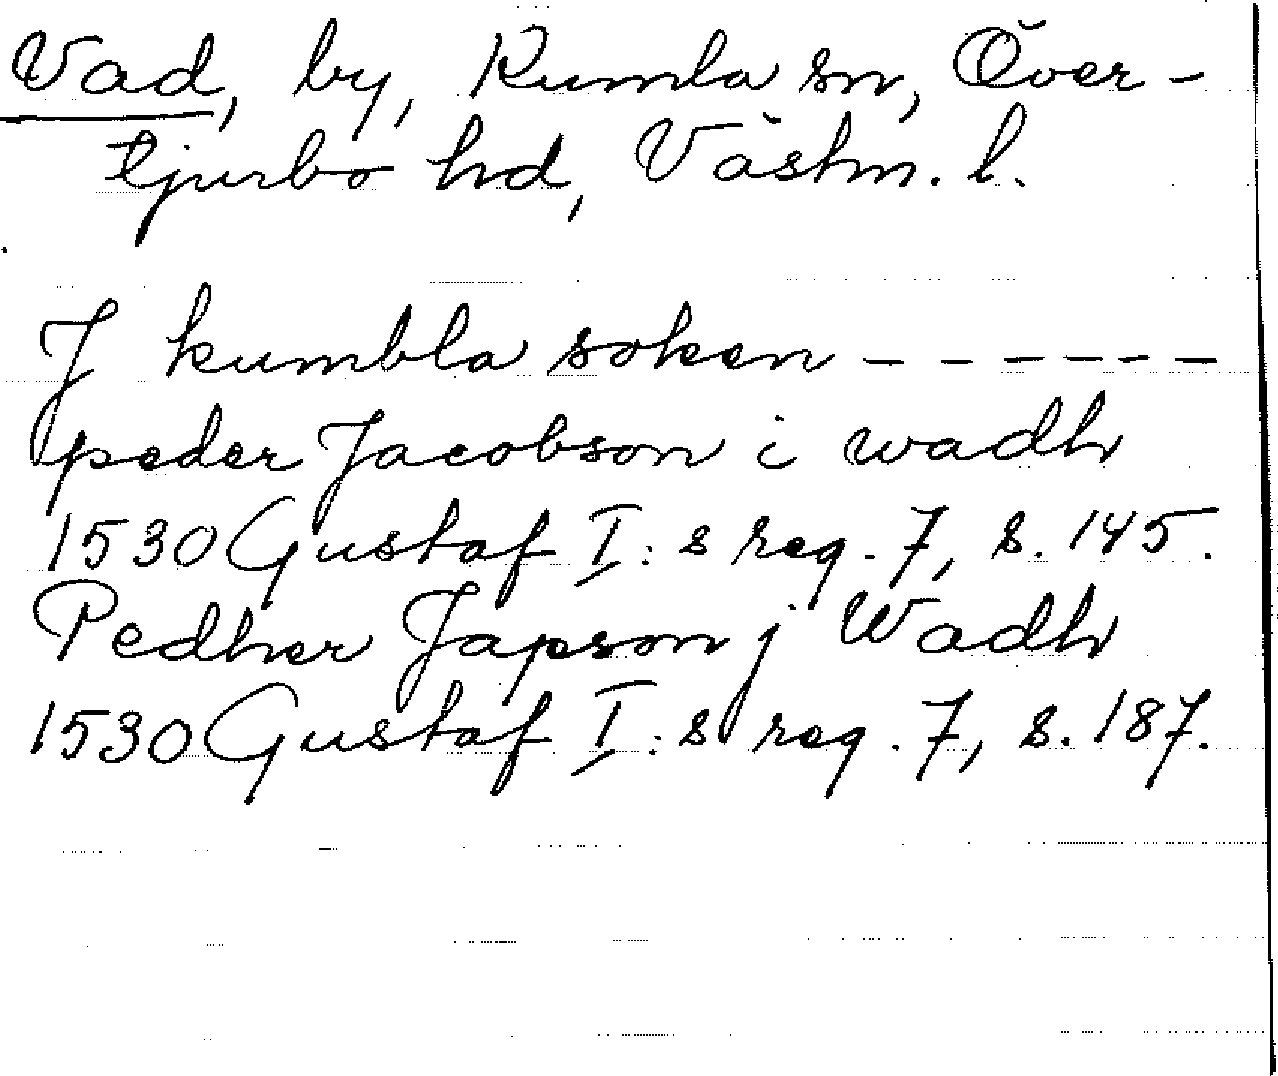 Vad, by, Kumla sn, Över-
tjurbo hd, Västm. l.
J kumbla soken - - - - - -
peder Jacobson i wadh
1530 Gustaf I: s reg. 7, s. 145.
Pedher Japson j Wadh
1530 Gustaf I: s reg. 7, s. 187.